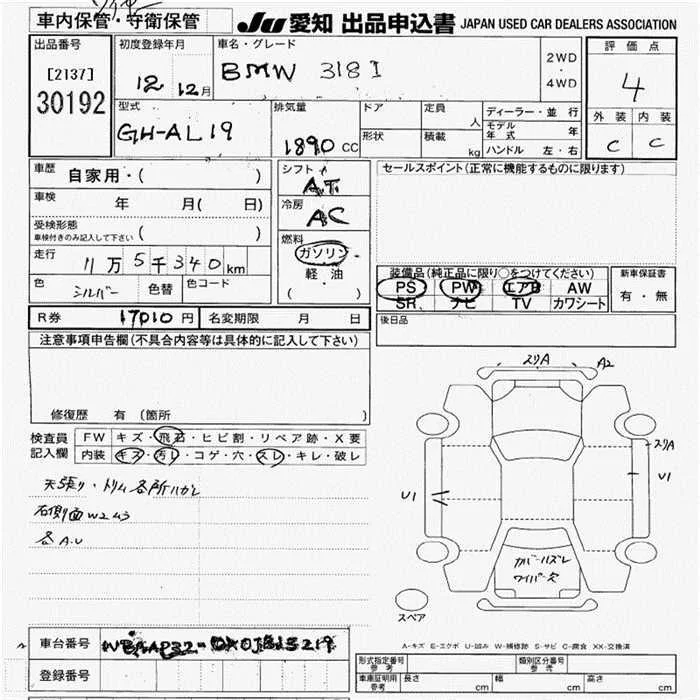 車内保管・守衛保管
JU 愛知 出品申込書 JAPAN USED CAR DEALERS ASSOCIATION
出品番号
[2137]
30192
初度登録年月
12 12月
車名・グレード
BMW 318I
2WD
・
4WD
評価点
4
外装 内装
C C
型式
GH-AL19
排気量
1890 CC
ドア
形状
定員
人
積載
kg
ディーラー・並行
モデル年式 年
ハンドル 左・右
車歴
自家用・( )
車検
年 月( 日)
受検形態
車検付きのみ記入して下さい ( )
走行
11万5千340km
色
シルバー
色替
色コード
シフト
AT
冷房
AC
燃料
ガソリン・
軽油
( )
セールスポイント(正常に機能するものに限ります)
装備品(純正品に限り○をつけてください)
PS PW エアB AW
SR ナビ TV カワシート
新車保証書
有・無
後日品
R券 17010 円
名変期限 月 日
注意事項申告欄(不具合内容等は具体的に記入して下さい)
修復歴 有 (箇所 )
検査員
記入欄
FW キズ・飛石・ヒビ割・リペア跡・X要
内装 キズ・汚レ・コゲ・穴・スレ・キレ・破レ
天張り・トリム各所ハガレ
右側面W2ムラ
各A.U
スリA A2
スリA
U1
U1
カバーハズレ
ワイパー欠
スペア
A-キズ E-エクボ U-凹み W-補修跡 S-サビ C-腐食 XX-交換済
車台番号
登録番号
形式指定番号
参考
類別区分番号
参考
車庫証明用
参考
長さ cm
幅 cm
高さ cm